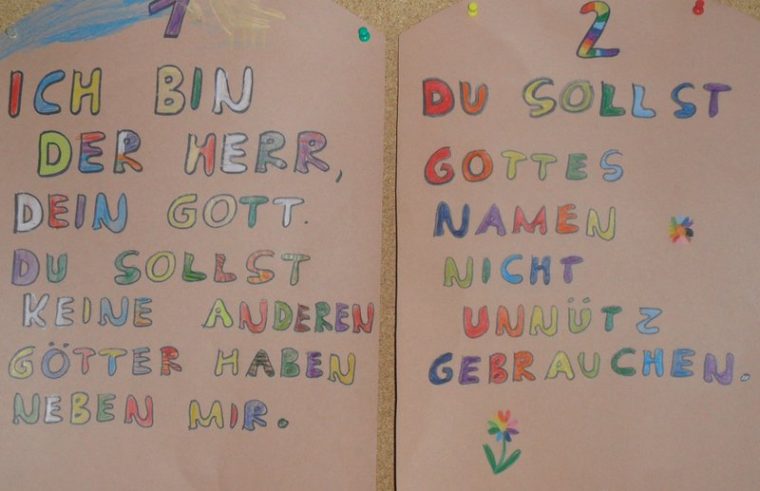 1
ICH BIN
DER HERR,
DEIN GOTT.
DU SOLLST
KEINE ANDEREN
GÖTTER HABEN
NEBEN MIR.
2
DU SOLLST
GOTTES
NAMEN
NICHT
UNNÜTZ
GEBRAUCHEN.